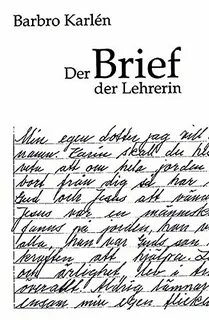 Barbro Karlén
Der Brief
der Lehrerin
Min egen dotter jag vill
namn. Karin skall du
veta att om hela jorden
bort från dig så har
Gud och Jesus att
Jesus var en människa
fanns på jorden, han
alla, han var Guds son
kraften att hjälpa.
och ärlighet, lev i
överallt! Aldrig
ensam min egen flicka